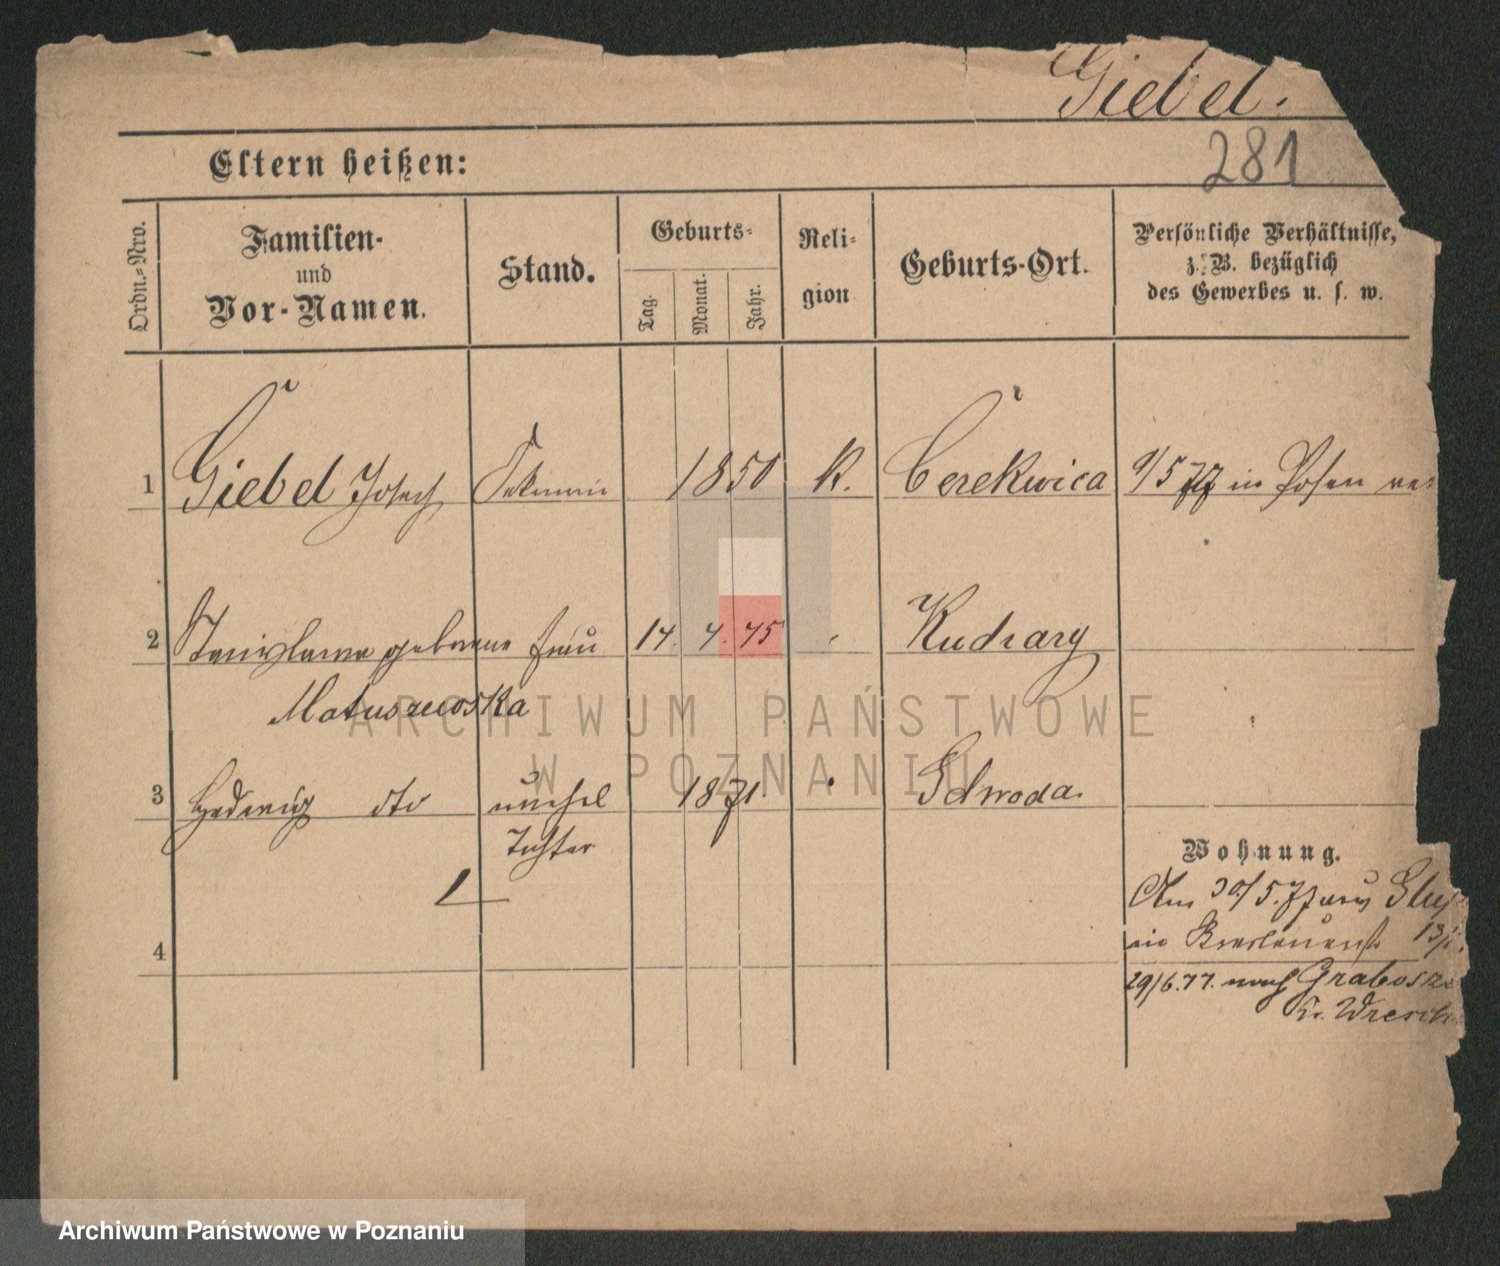 Giebel.
281
Eltern heißen:
Ordn.-Nro.
Familien-
und
Vor-Namen.
Stand.
Geburts-
Tag.
Monat.
Jahr.
Reli-
gion
Geburts-Ort.
Persönliche Verhältnisse,
z. B. bezüglich
des Gewerbes u. s. w.
1 Giebel Josef 1850 K. Cerekwica 9/5 77 in Posen
2 Stanislawa geborene Frau 14. 4. 45
Matuszewska
3 Hedwig dto unehel 1871
Tochter
4
Wohnung.
Am 30/5. 77 aus
29/6.77. nach
Kr.
ARCHIWUM PAŃSTWOWE
W POZNANIU
Archiwum Państwowe w Poznaniu